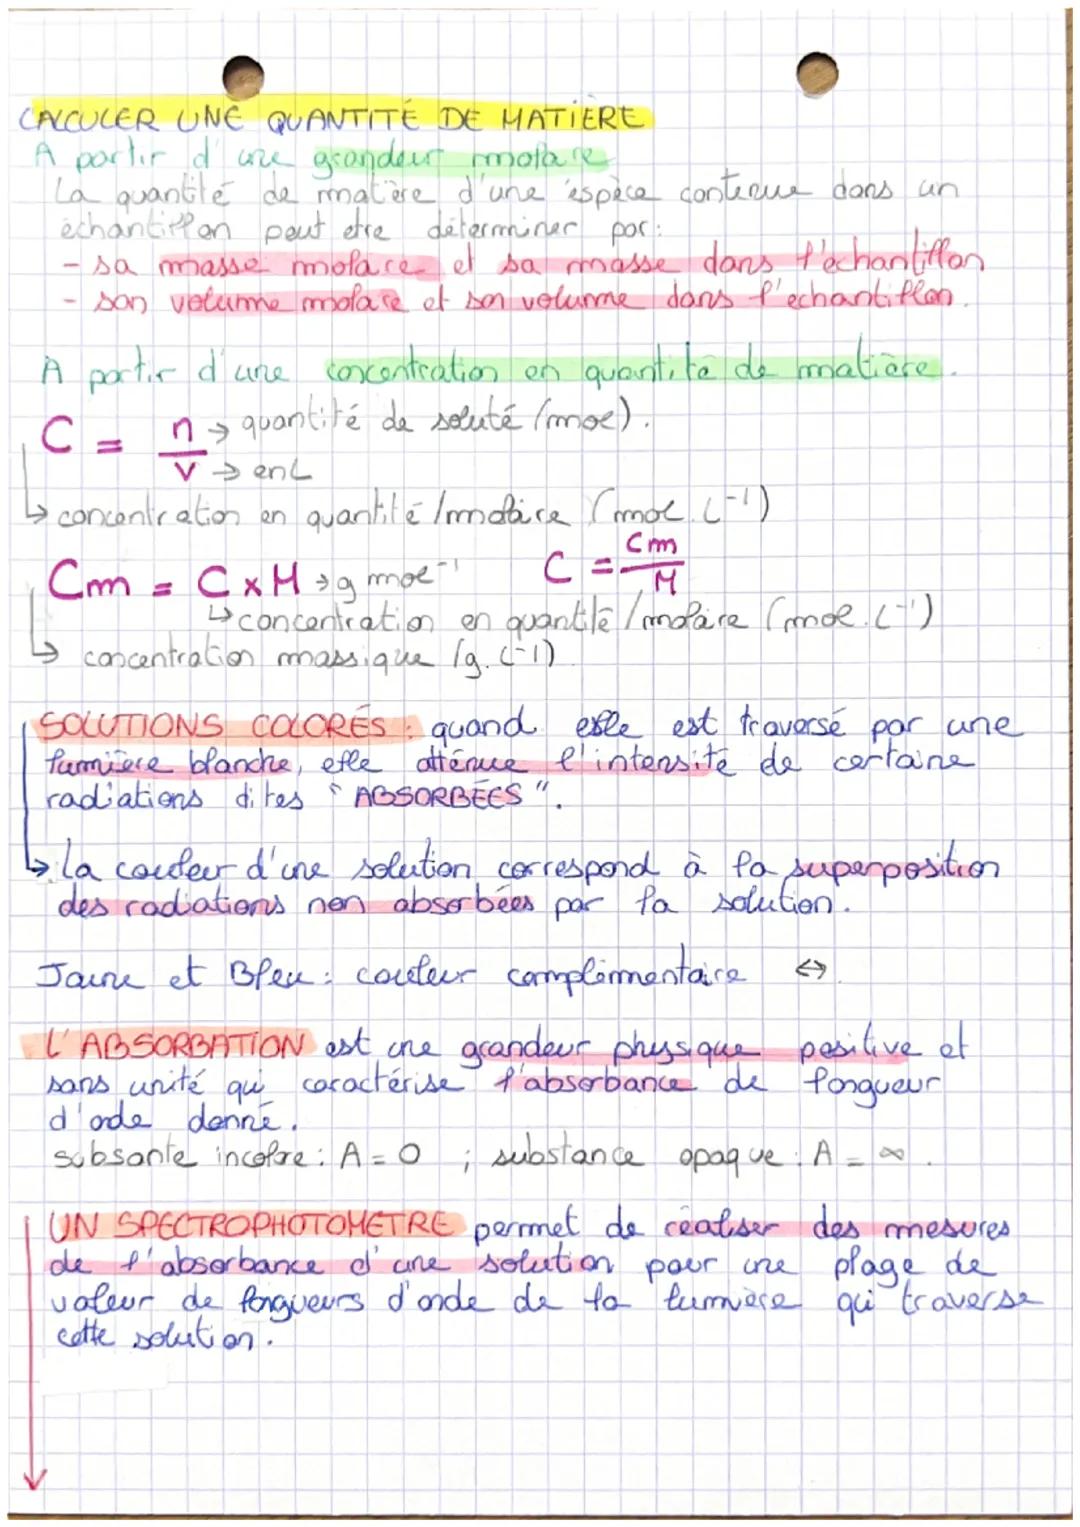 CALCULER UNE QUANTITÉ DE MATIÈRE
A partir d'une grandeur molaire
La quantité de matière d'une espèce contenue dans un
échantillon peut etre déterminer par:
- sa masse molaire et sa masse dans l'echantillon
- son volume molaire et son volume dans l'echantillon.
A partir d'une concentration en quantité de matière.
C = n/V → quantité de soluté (mol).
→ en L
↳ concentration en quantité/molaire (mol.L⁻¹)
Cm = C x M → g mol⁻¹ C = Cm/M
↳ concentration en quantité/molaire (mol.L⁻¹)
↳ concentration massique (g.L-1)
SOLUTIONS COLORÉS : quand elle est traversé par une
lumière blanche, elle atténue l'intensité de certaine
radiations dites "ABSORBÉES".
↳ La couleur d'une solution correspond à la superposition
des radiations non absorbées par la solution.
Jaune et Bleu : couleur complémentaire ↔.
L'ABSORBATION est une grandeur physique positive et
sans unité qui caractérise l'absorbance de longueur
d'ode donné.
subsante incolore : A = 0 ; substance opaque : A = ∞.
UN SPECTROPHOTOMETRE permet de réaliser des mesures
de l'absorbance d'une solution pour une plage de
valeur de longueurs d'onde de la lumière qui traverse
cette solution.